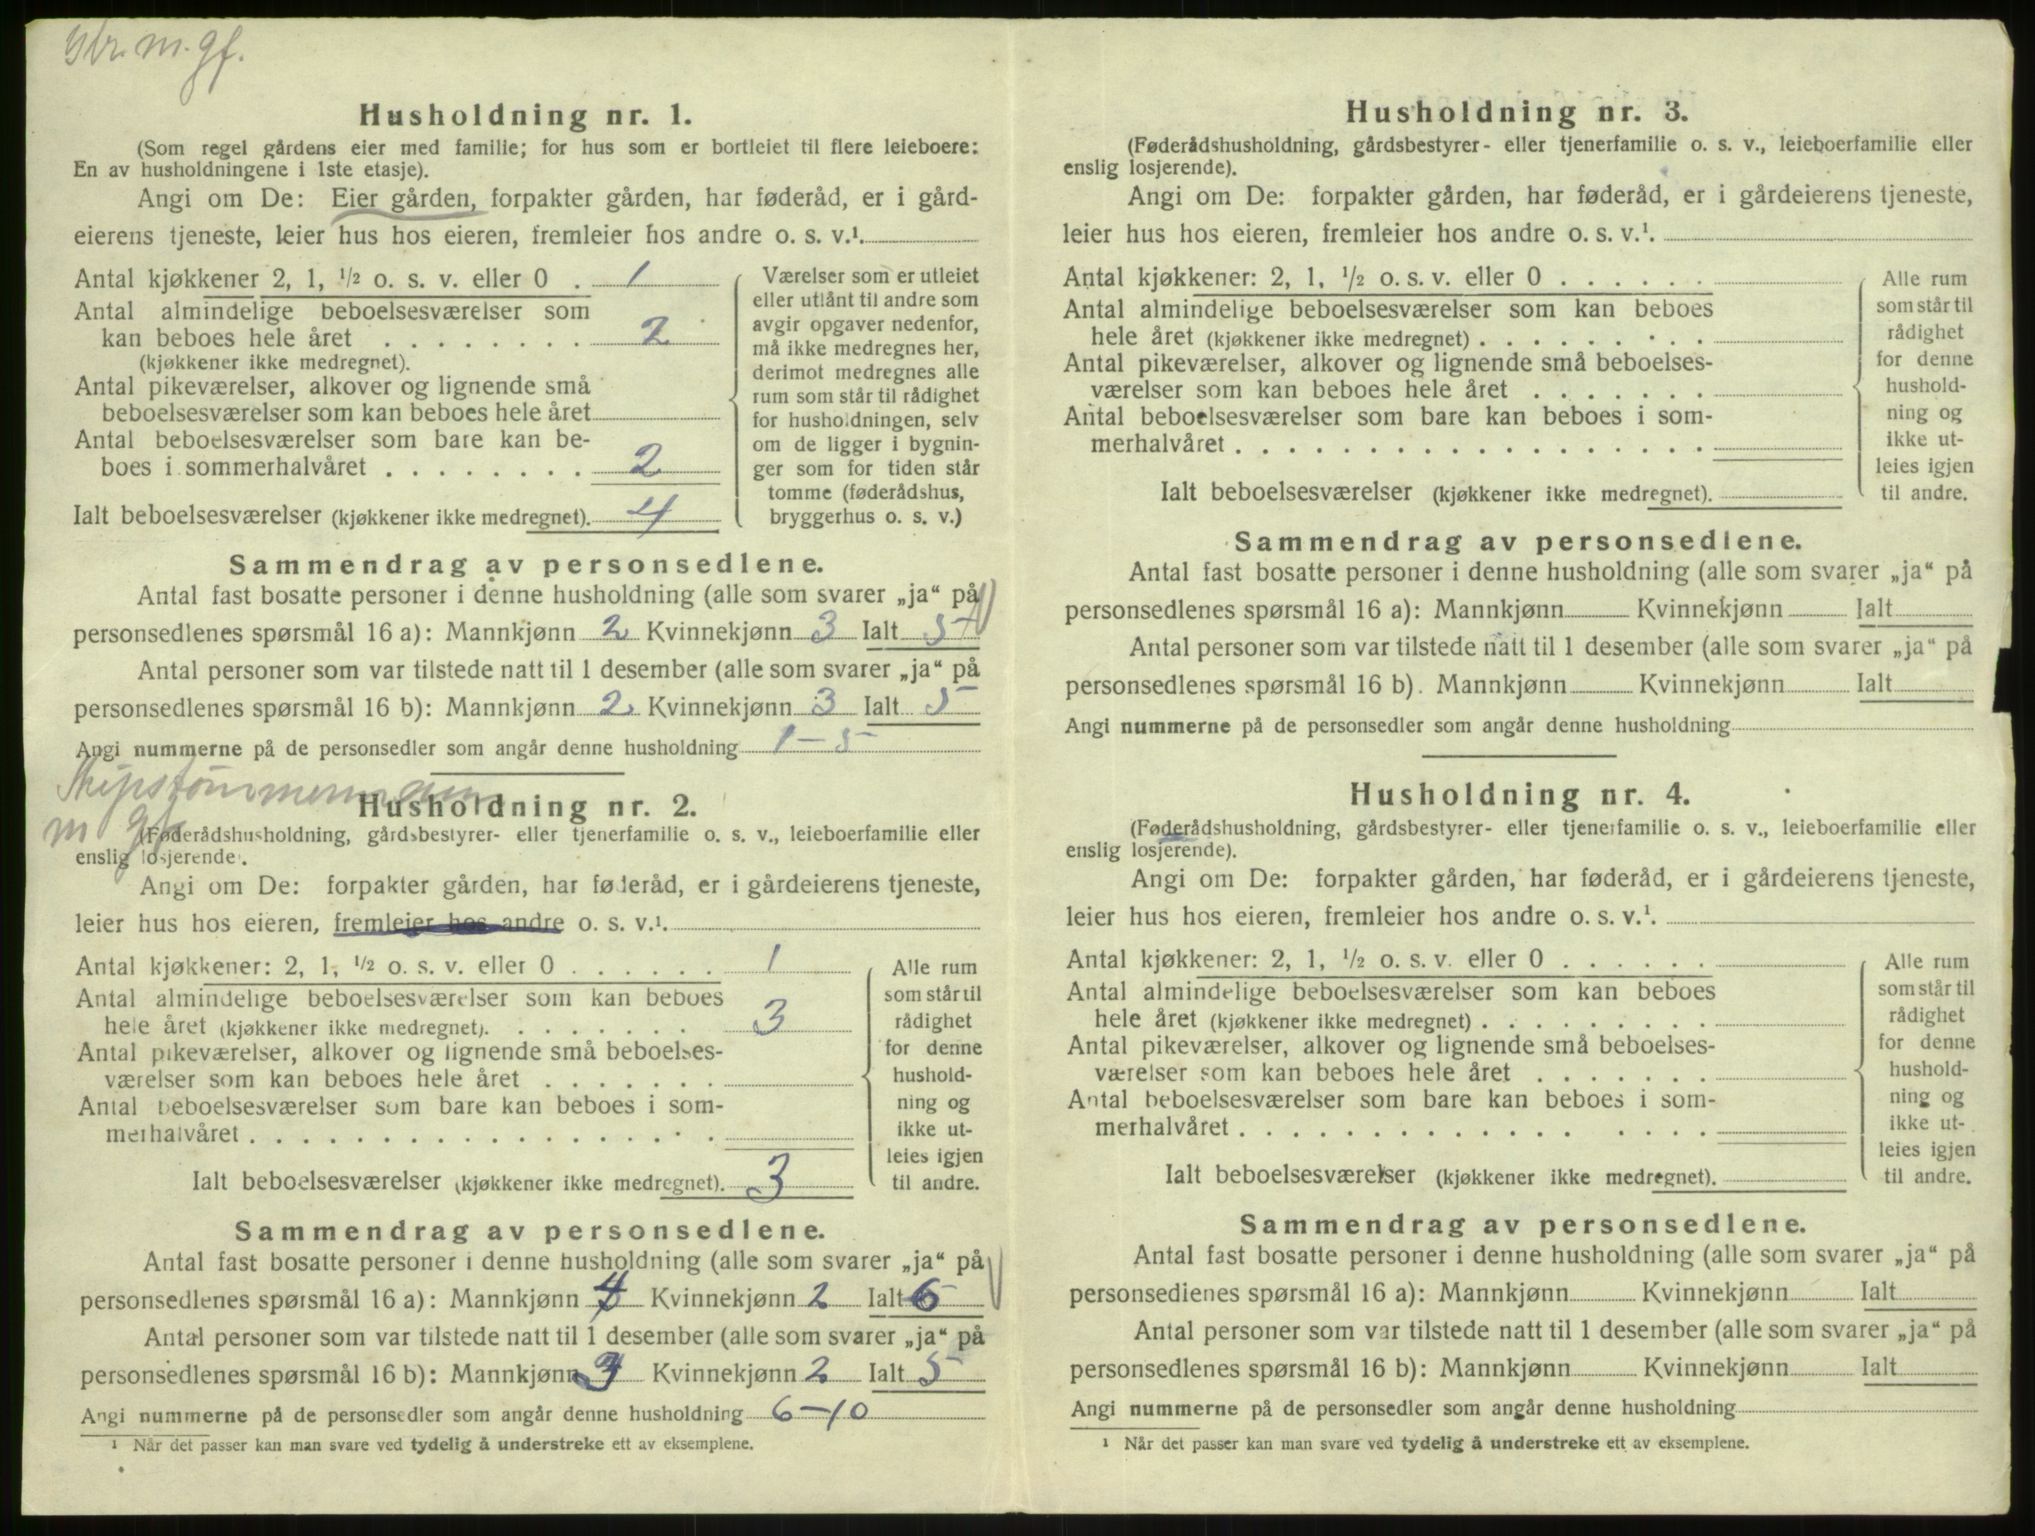 Gbr. m. gf.
Husholdning nr. 1.
(Som regel gårdens eier med familie; for hus som er bortleiet til flere leieboere:
En av husholdningene i 1ste etasje).
Angi om De: Eier gården, forpakter gården, har føderåd, er i gård-
eierens tjeneste, leier hus hos eieren, fremleier hos andre o. s. v.¹.
Antal kjøkkener 2, 1, ½ o. s. v. eller 0 . 1
Antal almindelige beboelsesværelser som
kan beboes hele året . . . . . . . . 2
(kjøkkener ikke medregnet).
Antal pikeværelser, alkover og lignende små
beboelsesværelser som kan beboes hele året
Antal beboelsesværelser som bare kan be-
boes i sommerhalvåret . . . . . . . . 2
Ialt beboelsesværelser (kjøkkener ikke medregnet). 4
Værelser som er utleiet
eller utlånt til andre som
avgir opgaver nedenfor,
må ikke medregnes her,
derimot medregnes alle
rum som står til rådighet
for husholdningen, selv
om de ligger i bygnin-
ger som for tiden står
tomme (føderådshus,
bryggerhus o. s. v.)
Sammendrag av personsedlene.
Antal fast bosatte personer i denne husholdning (alle som svarer „ja“ på
personsedlenes spørsmål 16 a): Mannkjønn 2 Kvinnekjønn 3 Ialt 5
Antal personer som var tilstede natt til 1 desember (alle som svarer „ja“ på
personsedlenes spørsmål 16 b): Mannkjønn 2 Kvinnekjønn 3 Ialt 5
Angi nummerne på de personsedler som angår denne husholdning 1-5
Skipstømmermann
m gf
Husholdning nr. 2.
(Føderådshusholdning, gårdsbestyrer- eller tjenerfamilie o. s. v., leieboerfamilie eller
enslig losjerende).
Angi om De: forpakter gården, har føderåd, er i gårdeierens tjeneste,
leier hus hos eieren, fremleier hos andre o. s. v.¹.
Antal kjøkkener: 2, 1, ½ o. s. v. eller 0 . . . . . . 1
Antal almindelige beboelsesværelser som kan beboes
hele året (kjøkkener ikke medregnet). . . . . . . . 3
Antal pikeværelser, alkover og lignende små beboelses-
værelser som kan beboes hele året . . . . . . .
Antal beboelsesværelser som bare kan beboes i som-
merhalvåret . . . . . . . . . . . . . . . . . .
Ialt beboelsesværelser (kjøkkener ikke medregnet). 3
Alle rum
som står til
rådighet
for denne
hushold-
ning og
ikke ut-
leies igjen
til andre.
Sammendrag av personsedlene.
Antal fast bosatte personer i denne husholdning (alle som svarer „ja“ på
personsedlenes spørsmål 16 a): Mannkjønn 4 Kvinnekjønn 2 Ialt 6
Antal personer som var tilstede natt til 1 desember (alle som svarer „ja“ på
personsedlenes spørsmål 16 b): Mannkjønn 3 Kvinnekjønn 2 Ialt 5
Angi nummerne på de personsedler som angår denne husholdning 6-10
¹ Når det passer kan man svare ved tydelig å understreke ett av eksemplene.
Husholdning nr. 3.
(Føderådshusholdning, gårdsbestyrer- eller tjenerfamilie o. s. v., leieboerfamilie eller
enslig losjerende).
Angi om De: forpakter gården, har føderåd, er i gårdeierens tjeneste,
leier hus hos eieren, fremleier hos andre o. s. v.¹.
Antal kjøkkener: 2, 1, ½ o. s. v. eller 0 . . . . . .
Antal almindelige beboelsesværelser som kan beboes
hele året (kjøkkener ikke medregnet) . . . . . . . . .
Antal pikeværelser, alkover og lignende små beboelses-
værelser som kan beboes hele året . . . . . . .
Antal beboelsesværelser som bare kan beboes i som-
merhalvåret . . . . . . . . . . . . . . . . . .
Ialt beboelsesværelser (kjøkkener ikke medregnet).
Alle rum
som står til
rådighet
for denne
hushold-
ning og
ikke ut-
leies igjen
til andre.
Sammendrag av personsedlene.
Antal fast bosatte personer i denne husholdning (alle som svarer „ja“ på
personsedlenes spørsmål 16 a): Mannkjønn Kvinnekjønn Ialt
Antal personer som var tilstede natt til 1 desember (alle som svarer „ja“ på
personsedlenes spørsmål 16 b). Mannkjønn Kvinnekjønn Ialt
Angi nummerne på de personsedler som angår denne husholdning
Husholdning nr. 4.
(Føderådshusholdning, gårdsbestyrer- eller tjenerfamilie o. s. v., leieboerfamilie eller
enslig losjerende).
Angi om De: forpakter gården, har føderåd, er i gårdeierens tjeneste,
leier hus hos eieren, fremleier hos andre o. s. v.¹.
Antal kjøkkener: 2, 1, ½ o. s. v. eller 0 . . . . . .
Antal almindelige beboelsesværelser som kan beboes
hele året (kjøkkener ikke medregnet) . . . . . . . . .
Antal pikeværelser, alkover og lignende små beboelses-
værelser som kan beboes hele året . . . . . . .
Antal beboelsesværelser som bare kan beboes i som-
merhalvåret . . . . . . . . . . . . . . . . . .
Ialt beboelsesværelser (kjøkkener ikke medregnet).
Alle rum
som står til
rådighet
for denne
hushold-
ning og
ikke ut-
leies igjen
til andre.
Sammendrag av personsedlene.
Antal fast bosatte personer i denne husholdning (alle som svarer „ja“ på
personsedlenes spørsmål 16 a): Mannkjønn Kvinnekjønn Ialt
Antal personer som var tilstede natt til 1 desember (alle som svarer „ja“ på
personsedlenes spørsmål 16 b): Mannkjønn Kvinnekjønn Ialt
Angi nummerne på de personsedler som angår denne husholdning
¹ Når det passer kan man svare ved tydelig å understreke ett av eksemplene.